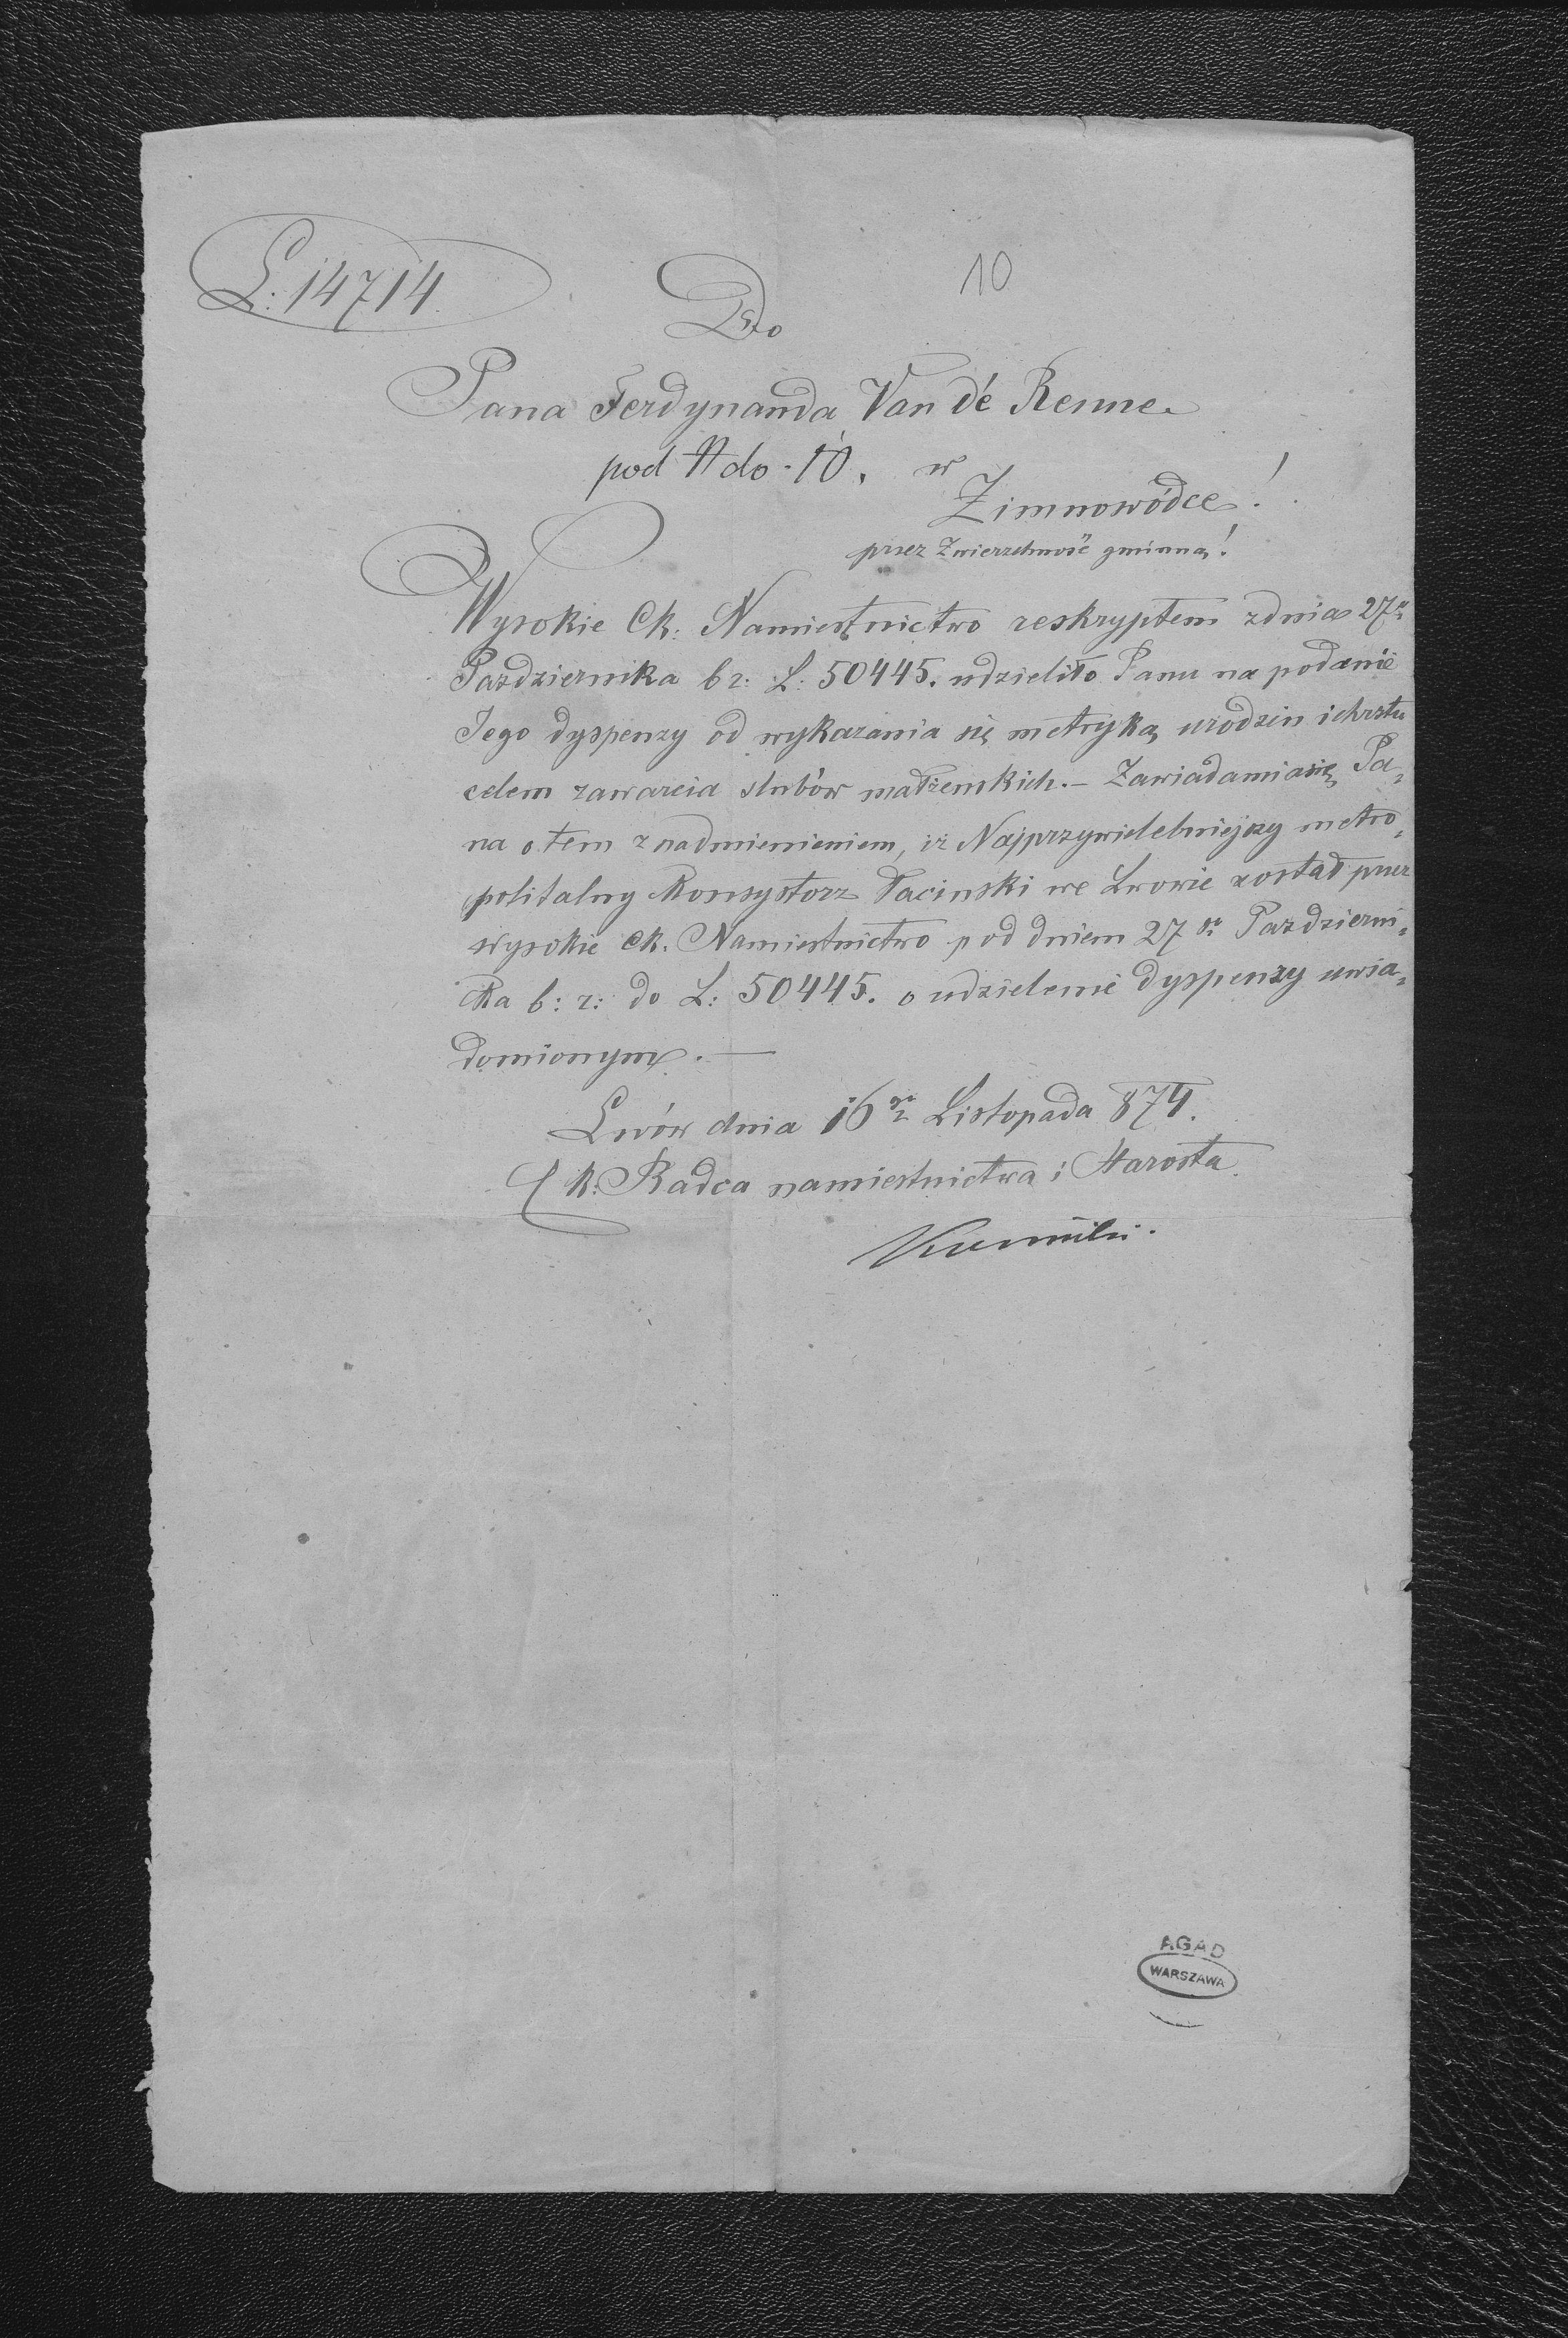 L: 14714.
10
Do
Pana Ferdynanda Van dé Renne
pod Ndo. 10. w
Zimnowódce!
przez Zwierzchność gminną!
Wysokie Ck: Namiestnictwo reskryptem zdnia 27go
Pazdziernika br: L: 50445. udzieliło Panu na podanie
Jego dyspenzy od wykazania się metryką urodzin i chrztu
celem zawarcia slubów małżenskich. – Zawiadamia się Pa„
na o tem z nadmienieniem, iż Najprzywielebniejszy metro„
politalny Konsystorz łacinski we Lwowie został przez
wysokie ck. Namiestnictwo pod dniem 27go Pazdzierni„
ka b: r: do L: 50445. o udzielenie dyspenzy uwia„
domionym. —
Lwów dnia 16go Listopada 874.
C k: Radca namiestnictwa i Starosta.
AGAD
WARSZAWA